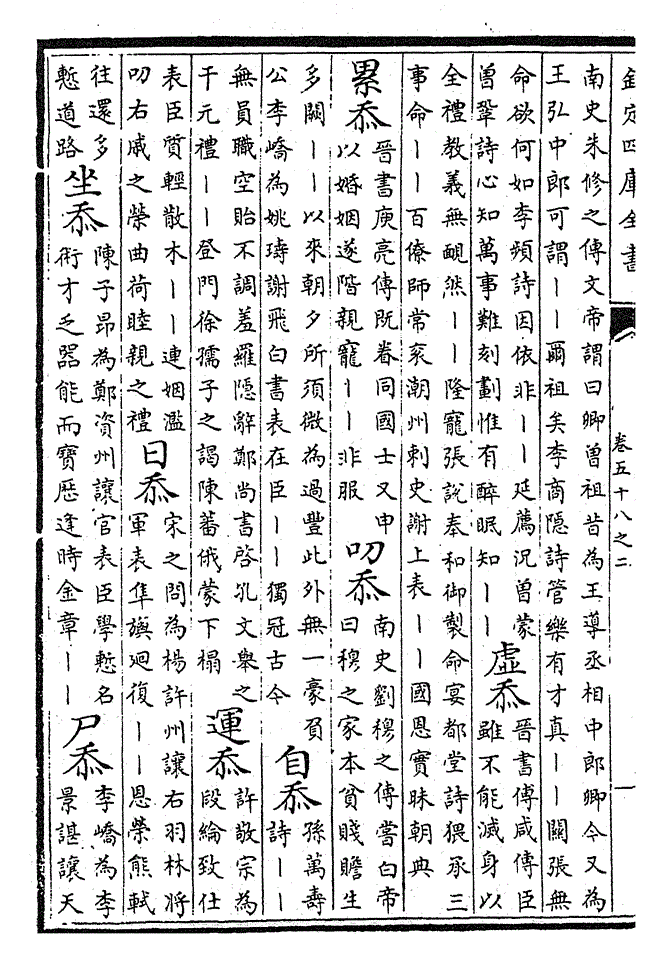 欽定四庫全書
卷五十八之二
一
南史朱修之傳文帝謂曰卿曽祖昔為王導丞相中郎卿今又為
王弘中郎可謂丨丨爾祖矣李商隱詩管樂有才真丨丨關張無
命欲何如李頻詩因依非丨丨延薦況曽蒙
曽鞏詩心知萬事難刻劃惟有醉眠知丨丨
虛忝
晉書傅咸傳臣
雖不能滅身以
全禮教義無靦然丨丨隆寵張說奉和御製命宴都堂詩猥承三
事命丨丨百僚師常衮潮州刺史謝上表丨丨國恩實昧朝典
累忝
晉書庾亮傳既眷同國士又申
以婚姻遂階親寵丨丨非服
叨忝
南史劉穆之傳嘗白帝
曰穆之家本貧賤贍生
多闕丨丨以來朝夕所須微為過豐此外無一豪負
公李嶠為姚璹謝飛白書表在臣丨丨獨冠古今
自忝
孫萬壽
詩丨丨
無員職空貽不調羞羅隱辭鄭尚書啓孔文舉之
干元禮丨丨登門徐孺子之謁陳蕃俄蒙下榻
運忝
許敬宗為
段綸致仕
表臣質輕散木丨丨連姻濫
叨右戚之榮曲荷睦親之禮
日忝
宋之問為楊許州讓右羽林將
軍表隼旟廻復丨丨恩榮熊軾
往還多
慙道路
坐忝
陳子昂為鄭資州讓官表臣學慙名
術才乏器能而寶歴逢時金章丨丨
尸忝
李嶠為李
景諶讓天